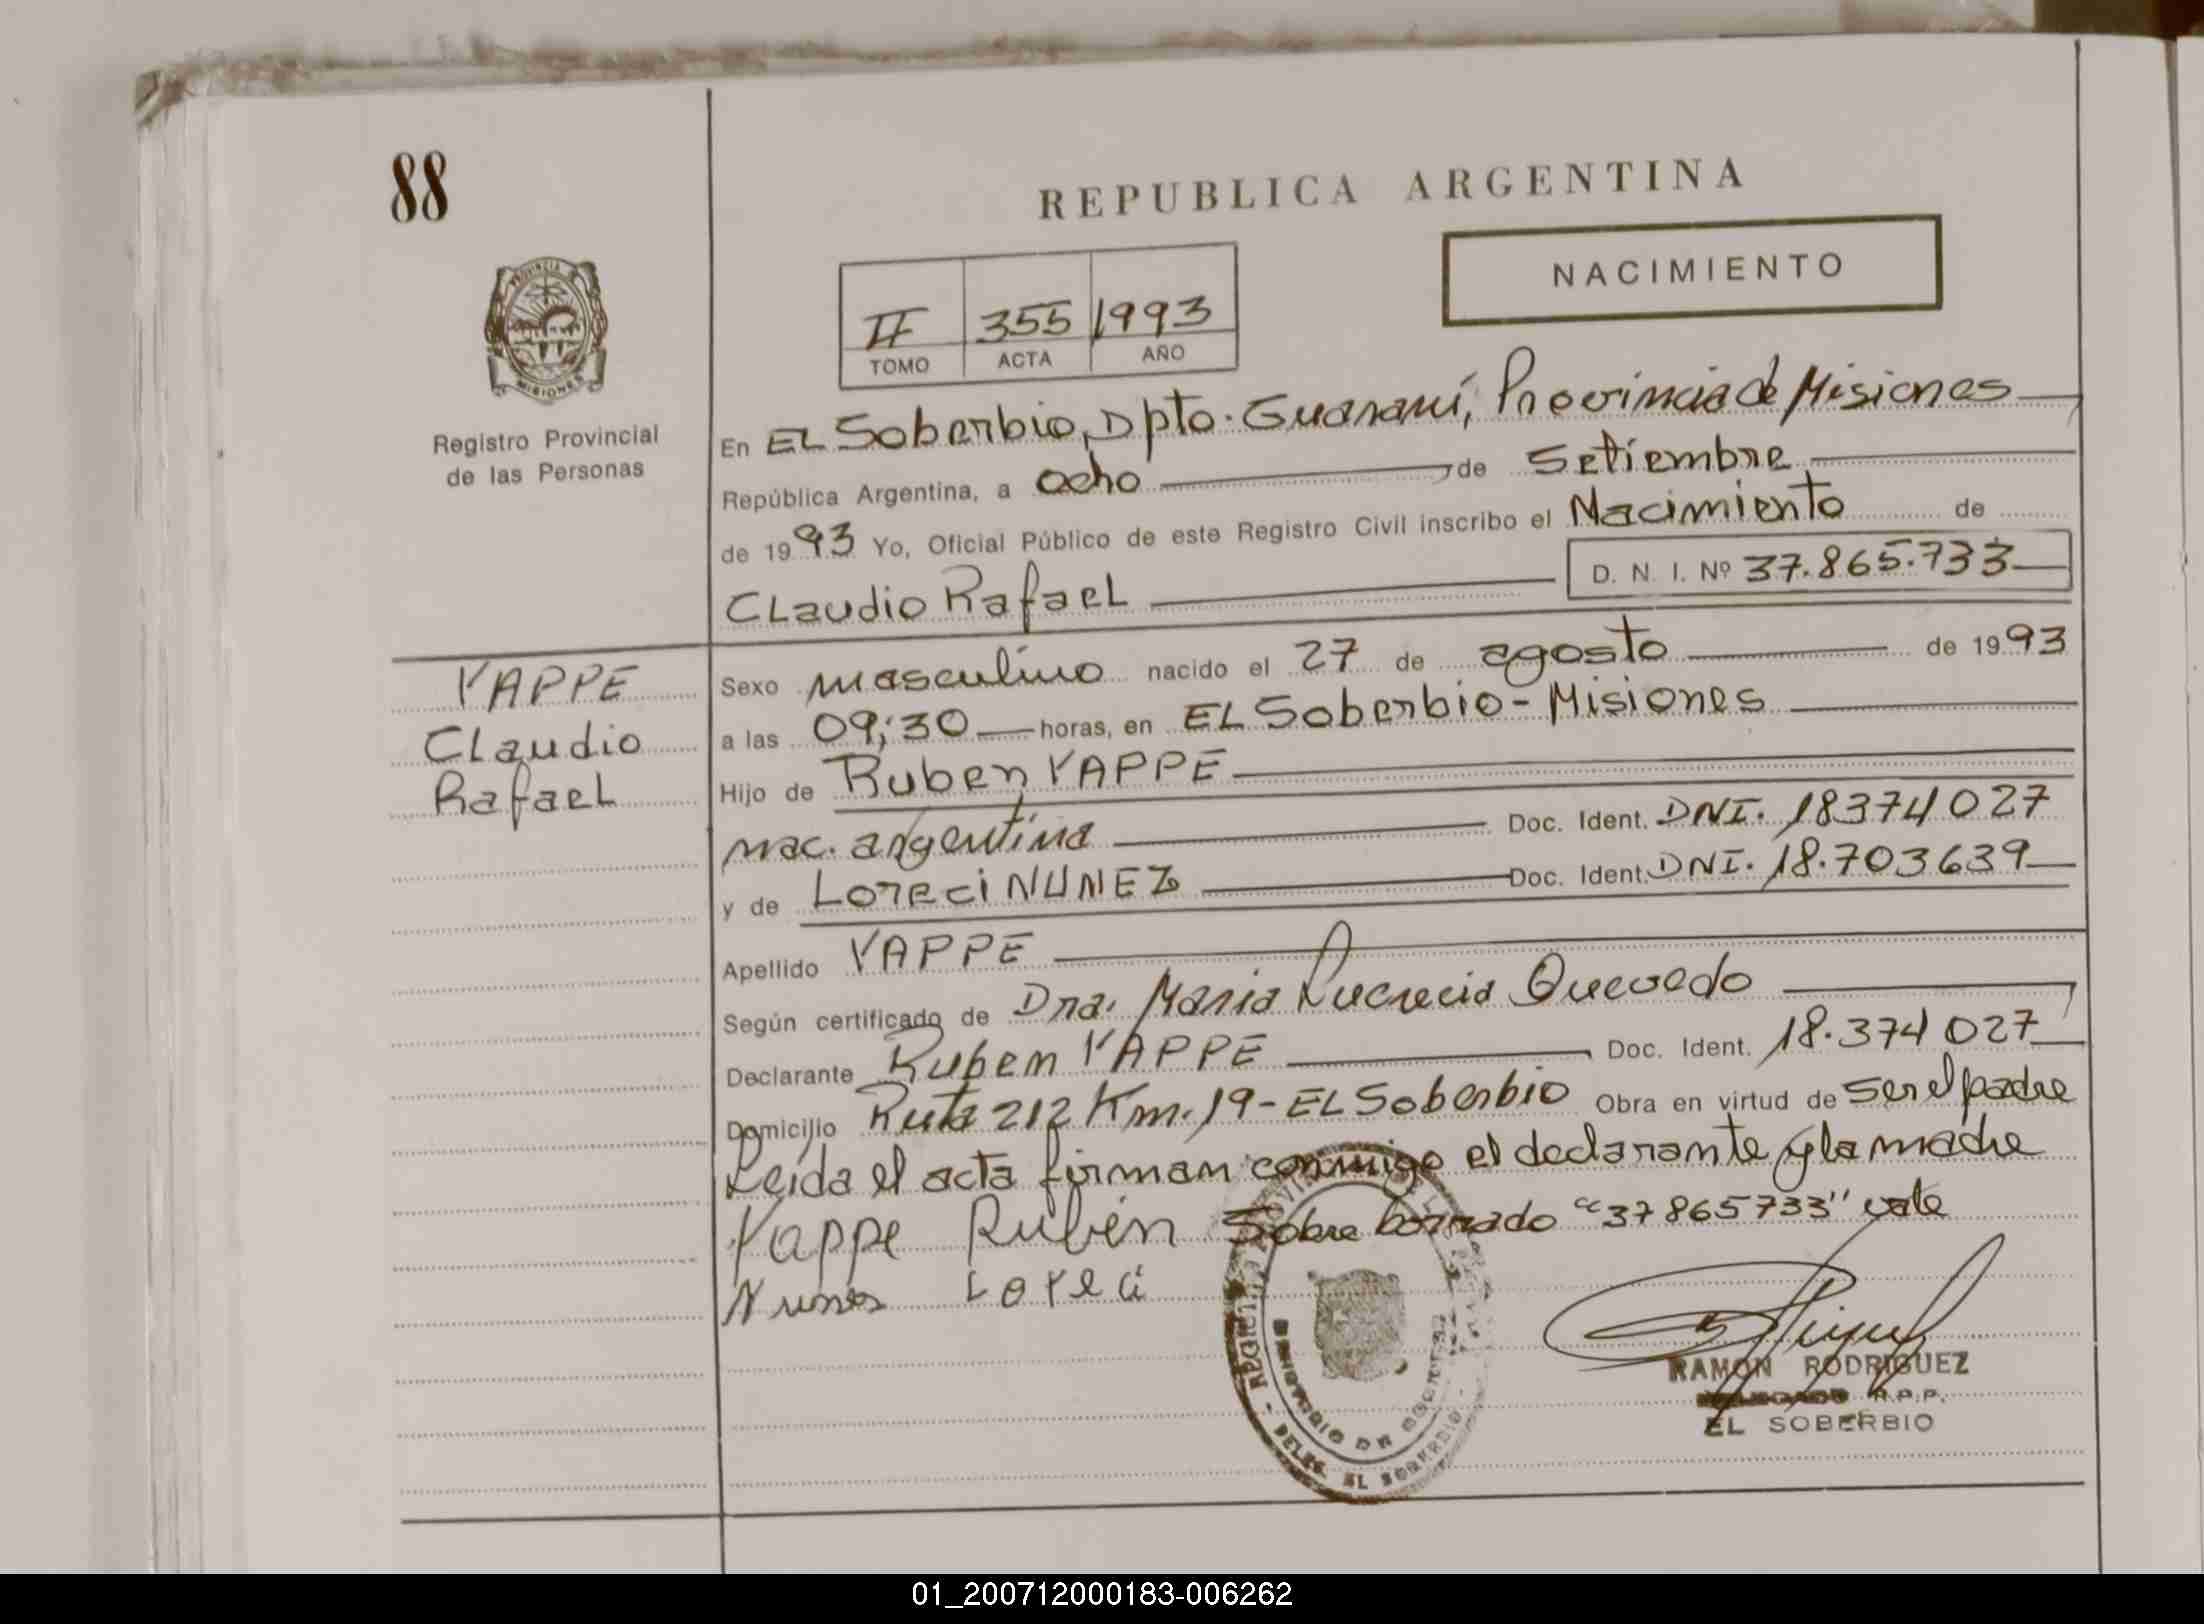 88
REPUBLICA ARGENTINA
NACIMIENTO
II 355 1993
TOMO ACTA AÑO
PROVINCIA
MISIONES
Registro Provincial
de las Personas
En EL Soberbio, Dpto. Guaraní, Provincia de Misiones
República Argentina, a ocho de Setiembre
de 1993 Yo, Oficial Público de este Registro Civil inscribo el Nacimiento de
Claudio Rafael D. N. I. Nº 37.865.733
YAPPE
Claudio
Rafael
Sexo masculino nacido el 27 de agosto de 1993
a las 09;30 horas, en EL Soberbio - Misiones
Hijo de Ruben YAPPE
nac. argentina Doc. Ident. DNI. 18374027
y de Loreci NUNEZ Doc. Ident. DNI. 18.703639
Apellido YAPPE
Según certificado de Dra. Maria Lucrecia Quevedo
Declarante Ruben YAPPE Doc. Ident. 18.374027
Domicilio Ruta 212 Km. 19 - EL Soberbio Obra en virtud de ser el padre
Leída el acta firman conmigo el declarante y la madre
Yappe Rubén Sobre borrado "37865733" vale
Nunes Loreci
RAMON RODRIGUEZ
R.P.P.
EL SOBERBIO
DELEG. EL SOBERBIO
01_200712000183-006262